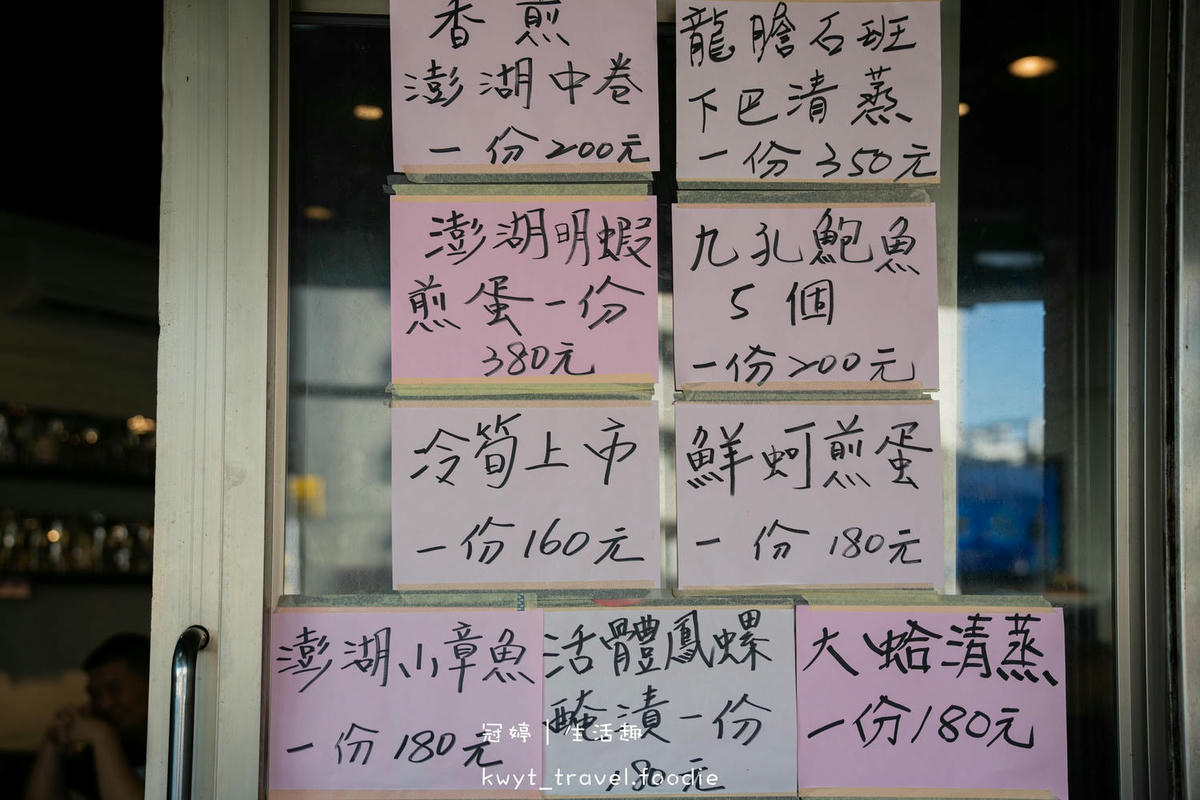 香煎
澎湖中卷
一份200元
龍膽石班
下巴清蒸
一份350元
澎湖明蝦
煎蛋一份
380元
九孔鮑魚
5個
一份200元
冷筍上市
一份160元
鮮蚵煎蛋
一份180元
澎湖小章魚
一份180元
活體鳳螺
醃漬一份
80元
大蛤清蒸
一份180元
冠婷｜生活趣
kwyt_travel.foodie